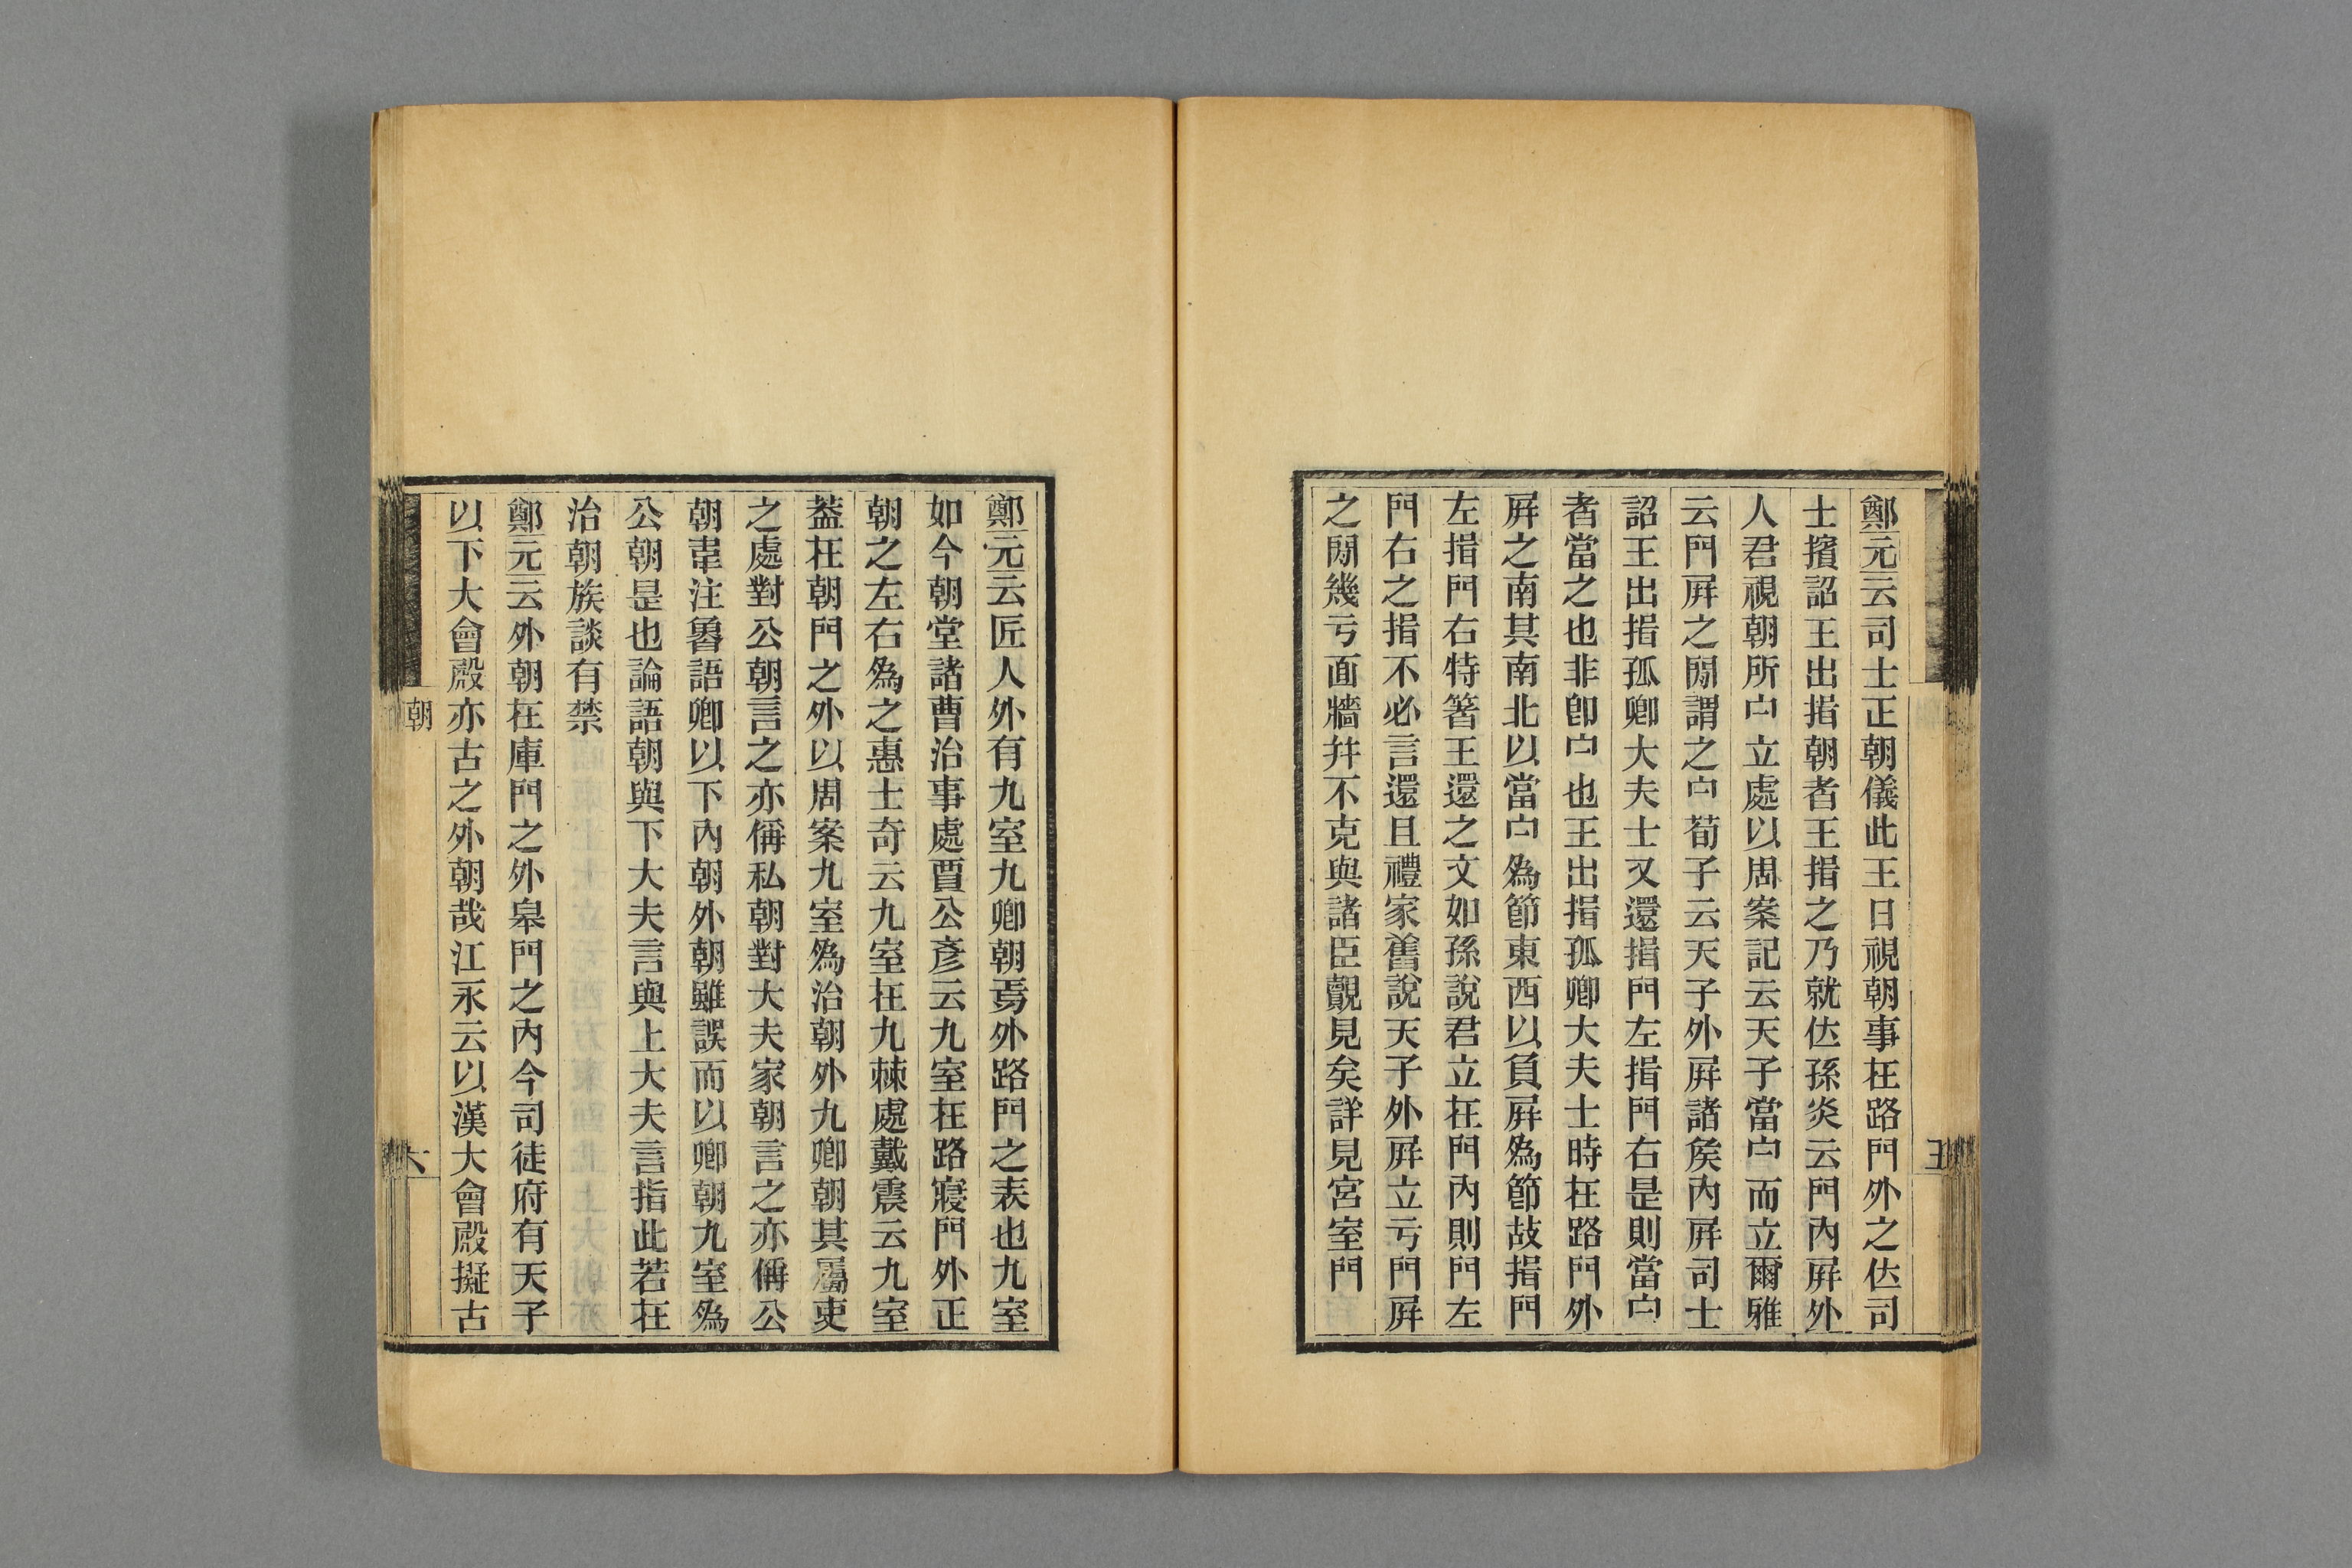 鄭元云司士正朝儀此王日視朝事在路門外之位司
士擯詔王出揖朝者王揖之乃就位孫炎云門內屛外
人君視朝所宁立處以周案記云天子當宁而立爾雅
云門屛之閒謂之宁荀子云天子外屛諸矦內屛司士
詔王出揖孤卿大夫士又還揖門左揖門右是則當宁
者當之也非卽宁也王出揖孤卿大夫士時在路門外
屛之南其南北以當宁爲節東西以負屛爲節故揖門
左揖門右特箸王還之文如孫說君立在門內則門左
門右之揖不必言還且禮家舊說天子外屛立亏門屛
之閒幾亏面牆幷不克與諸臣覿見矣詳見宮室門
五
鄭元云匠人外有九室九卿朝焉外路門之表也九室
如今朝堂諸曹治事處賈公彥云九室在路寢門外正
朝之左右爲之惠士奇云九室在九棘處戴震云九室
葢在朝門之外以周案九室爲治朝外九卿朝其屬吏
之處對公朝言之亦偁私朝對大夫家朝言之亦偁公
朝韋注魯語卿以下內朝外朝雖誤而以卿朝九室爲
公朝是也論語朝與下大夫言與上大夫言指此若在
治朝族談有禁
鄭元云外朝在庫門之外皋門之內今司徒府有天子
以下大會殿亦古之外朝哉江永云以漢大會殿擬古
朝
六